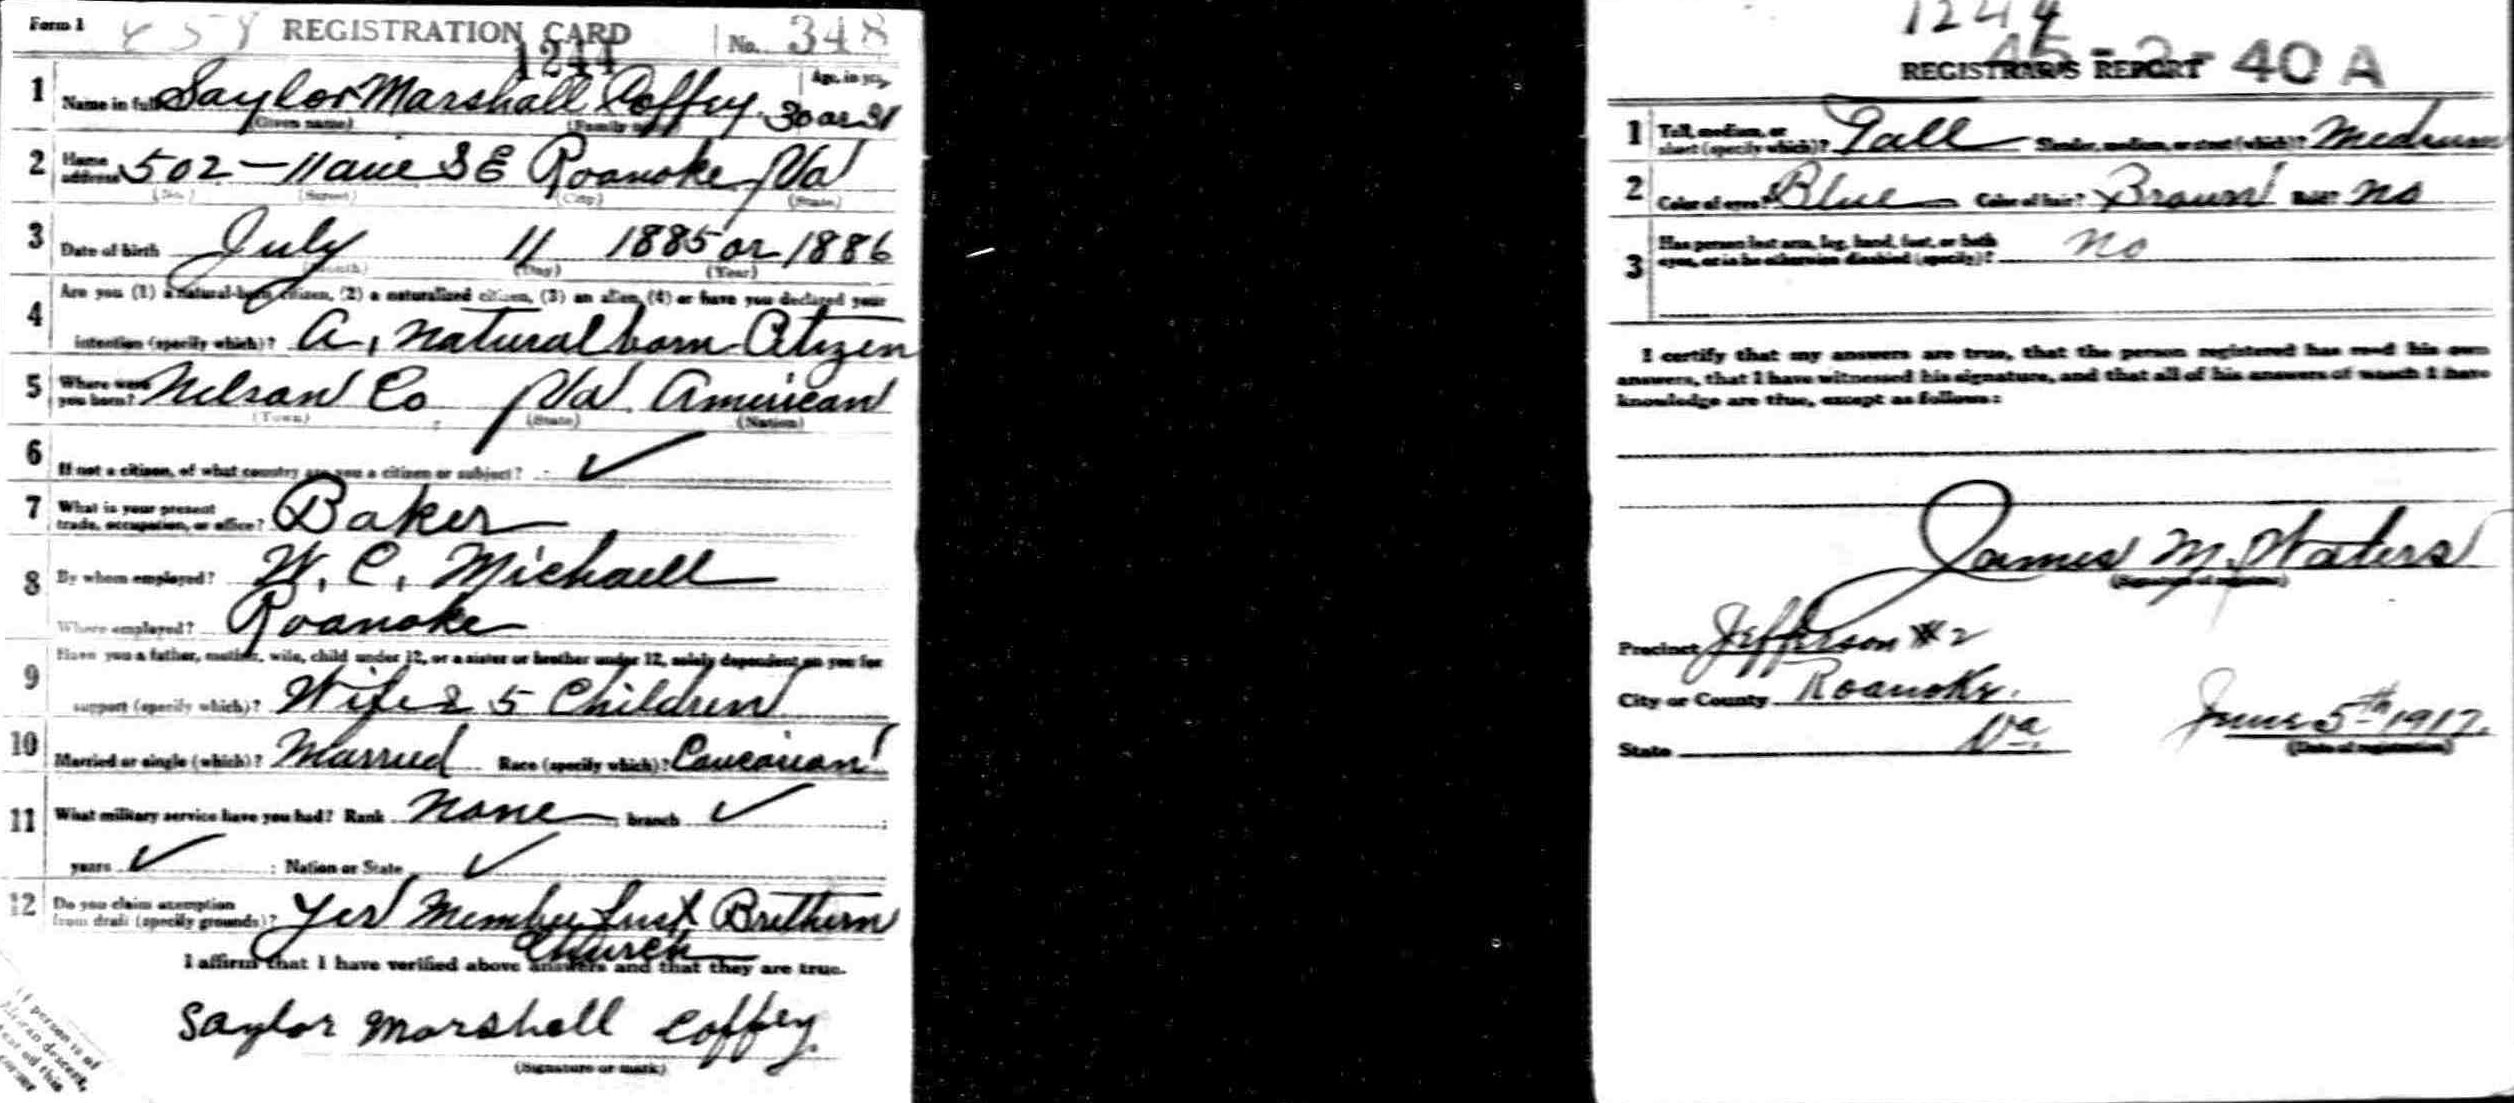 Form 1 458 REGISTRATION CARD No. 348
1244
1 Name in full Saylor Marshall Coffey Age, in yrs. 30 or 31
(Given name) (Family name)
2 Home address 502 - 11 ave S E Roanoke Va
(No.) (Street) (City) (State)
3 Date of birth July 11 1885 or 1886
(Month) (Day) (Year)
4 Are you (1) a natural-born citizen, (2) a naturalized citizen, (3) an alien, (4) or have you declared your
intention (specify which)? A, natural born Citizen
5 Where were you born? Nelson Co Va American
(Town) (State) (Nation)
6 If not a citizen, of what country are you a citizen or subject? ✓
7 What is your present
trade, occupation, or office? Baker
8 By whom employed? W. C. Michaell
Where employed? Roanoke
9 Have you a father, mother, wife, child under 12, or a sister or brother under 12, solely dependent on you for
support (specify which)? Wife & 5 Children
10 Married or single (which)? Married Race (specify which)? Caucasian
11 What military service have you had? Rank None ; branch ✓ ;
years ✓ ; Nation or State ✓
12 Do you claim exemption
from draft (specify grounds)? Yes Member Brethern
Church
I affirm that I have verified above answers and that they are true.
Saylor Marshall Coffey.
(Signature or mark)
If person is of
African descent,
corner
1244
45-2-40 A
REGISTRAR'S REPORT
1 Tall, medium, or
short (specify which)? Tall Slender, medium, or stout (which)? Medium
2 Color of eyes? Blue Color of hair? Brown Bald? No
3 Has person lost arm, leg, hand, foot, or both
eyes, or is he otherwise disabled (specify)? No
I certify that my answers are true, that the person registered has read his own
answers, that I have witnessed his signature, and that all of his answers of which I have
knowledge are true, except as follows:
James M. Waters
(Signature of registrar)
Precinct Jefferson #2
City or County Roanoke.
State Va. June 5th 1917.
(Date of registration)